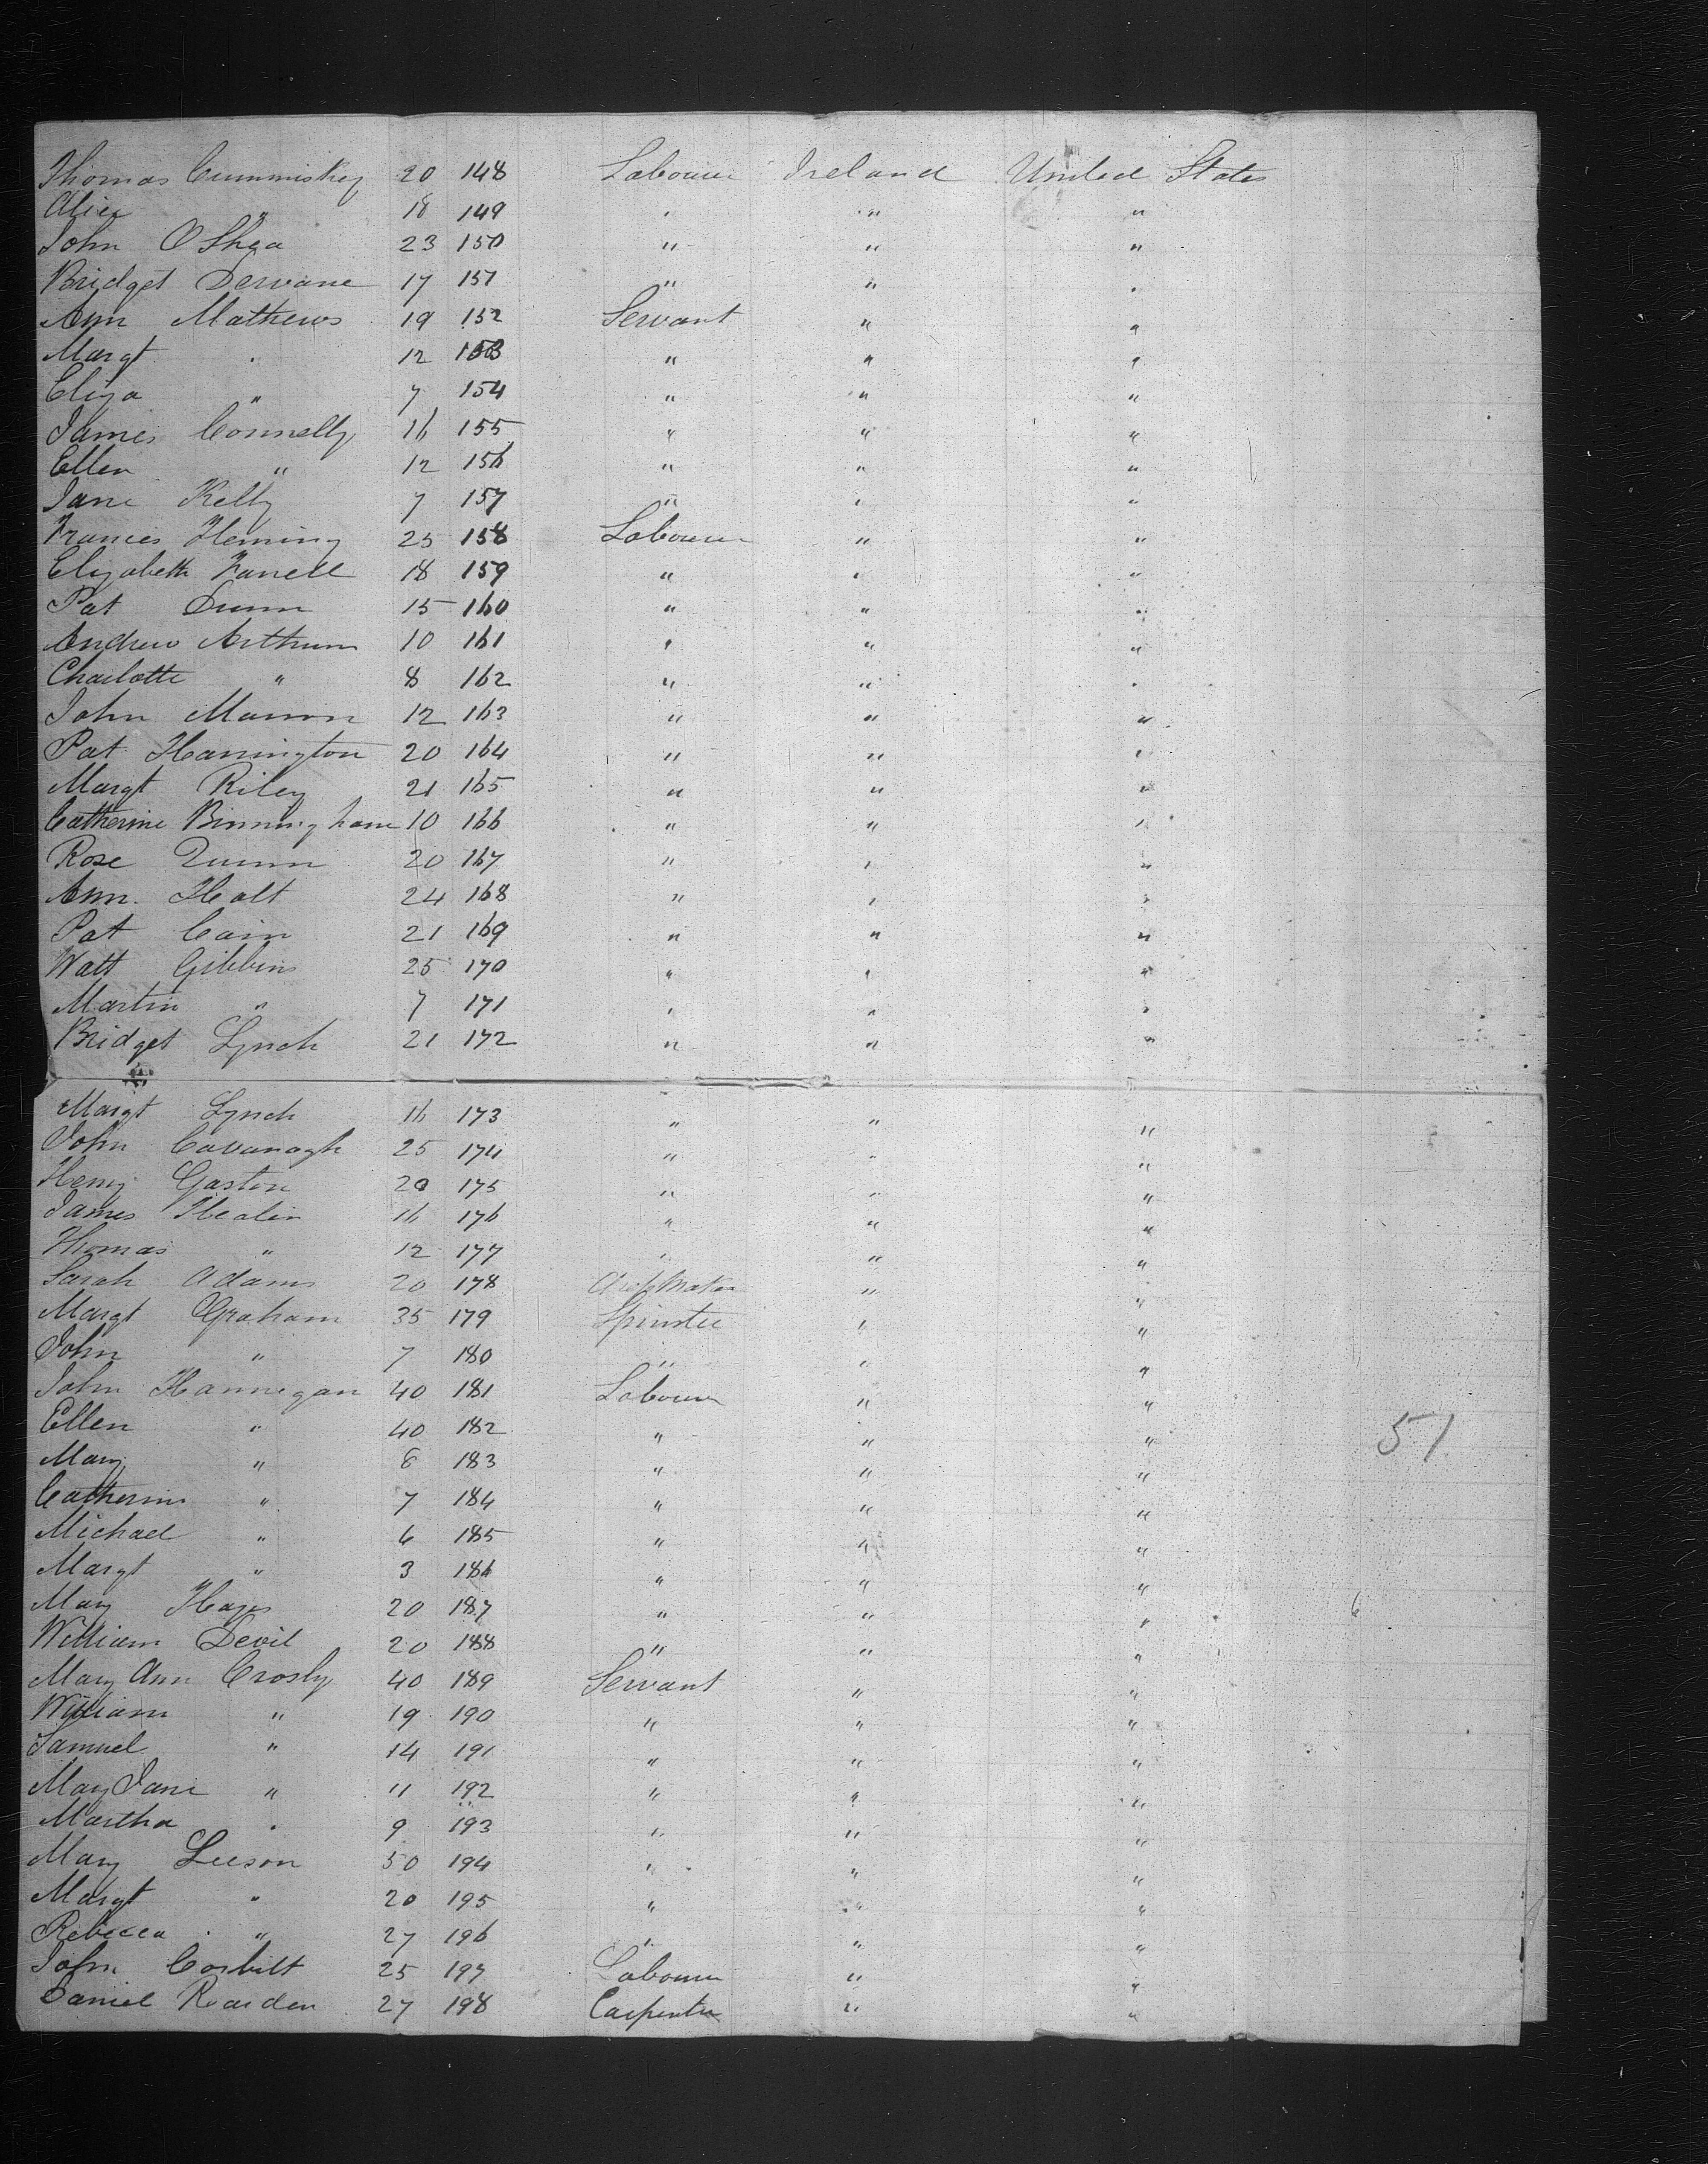 Thomas Cummiskey 20 148 Labourer Ireland United States
Alice " 18 149 " " "
John O Shea 23 150 " " "
Bridget Dervane 17 151 " " "
Ann Mathews 19 152 Servant " "
Margt " 12 153 " " "
Eliza " 7 154 " " "
James Connelly 16 155 " " "
Ellen " 12 156 " " "
Jane Kelly 7 157 " " "
Francis Fleming 25 158 Labourer " "
Elizabeth Farrell 18 159 " " "
Pat Dunn 15 160 " " "
Andrew Arthurs 10 161 " " "
Charlotte " 8 162 " " "
John Marron 12 163 " " "
Pat Harrington 20 164 " " "
Margt Riley 21 165 " " "
Catherine Birmingham 10 166 " " "
Rose Quinn 20 167 " " "
Ann Holt 24 168 " " "
Pat Cain 21 169 " " "
Watt Gibbins 25 170 " " "
Martin " 7 171 " " "
Bridget Lynch 21 172 " " "
Margt Lynch 16 173 " " "
John Cavanagh 25 174 " " "
Henry Gaston 20 175 " " "
James Healin 16 176 " " "
Thomas " 12 177 " " "
Sarah Adams 20 178 " "
Margt Graham 35 179 Spinster " "
John " 7 180 " " "
John Hannegan 40 181 Labourer " "
Ellen " 40 182 " " "
Mary " 8 183 " " "
Catherine " 7 184 " " "
Michael " 6 185 " " "
Margt " 3 186 " " "
Mary Hayes 20 187 " " "
William Devil 20 188 " " "
Mary Ann Crosby 40 189 Servant " "
William " 19 190 " " "
Samuel " 14 191 " " "
Mary Jane " 11 192 " " "
Martha " 9 193 " " "
Mary Leeson 50 194 " " "
Margt " 20 195 " " "
Rebecca " 27 196 " " "
John Corbitt 25 197 Labourer " "
Daniel Rearden 27 198 Carpenter " "
51